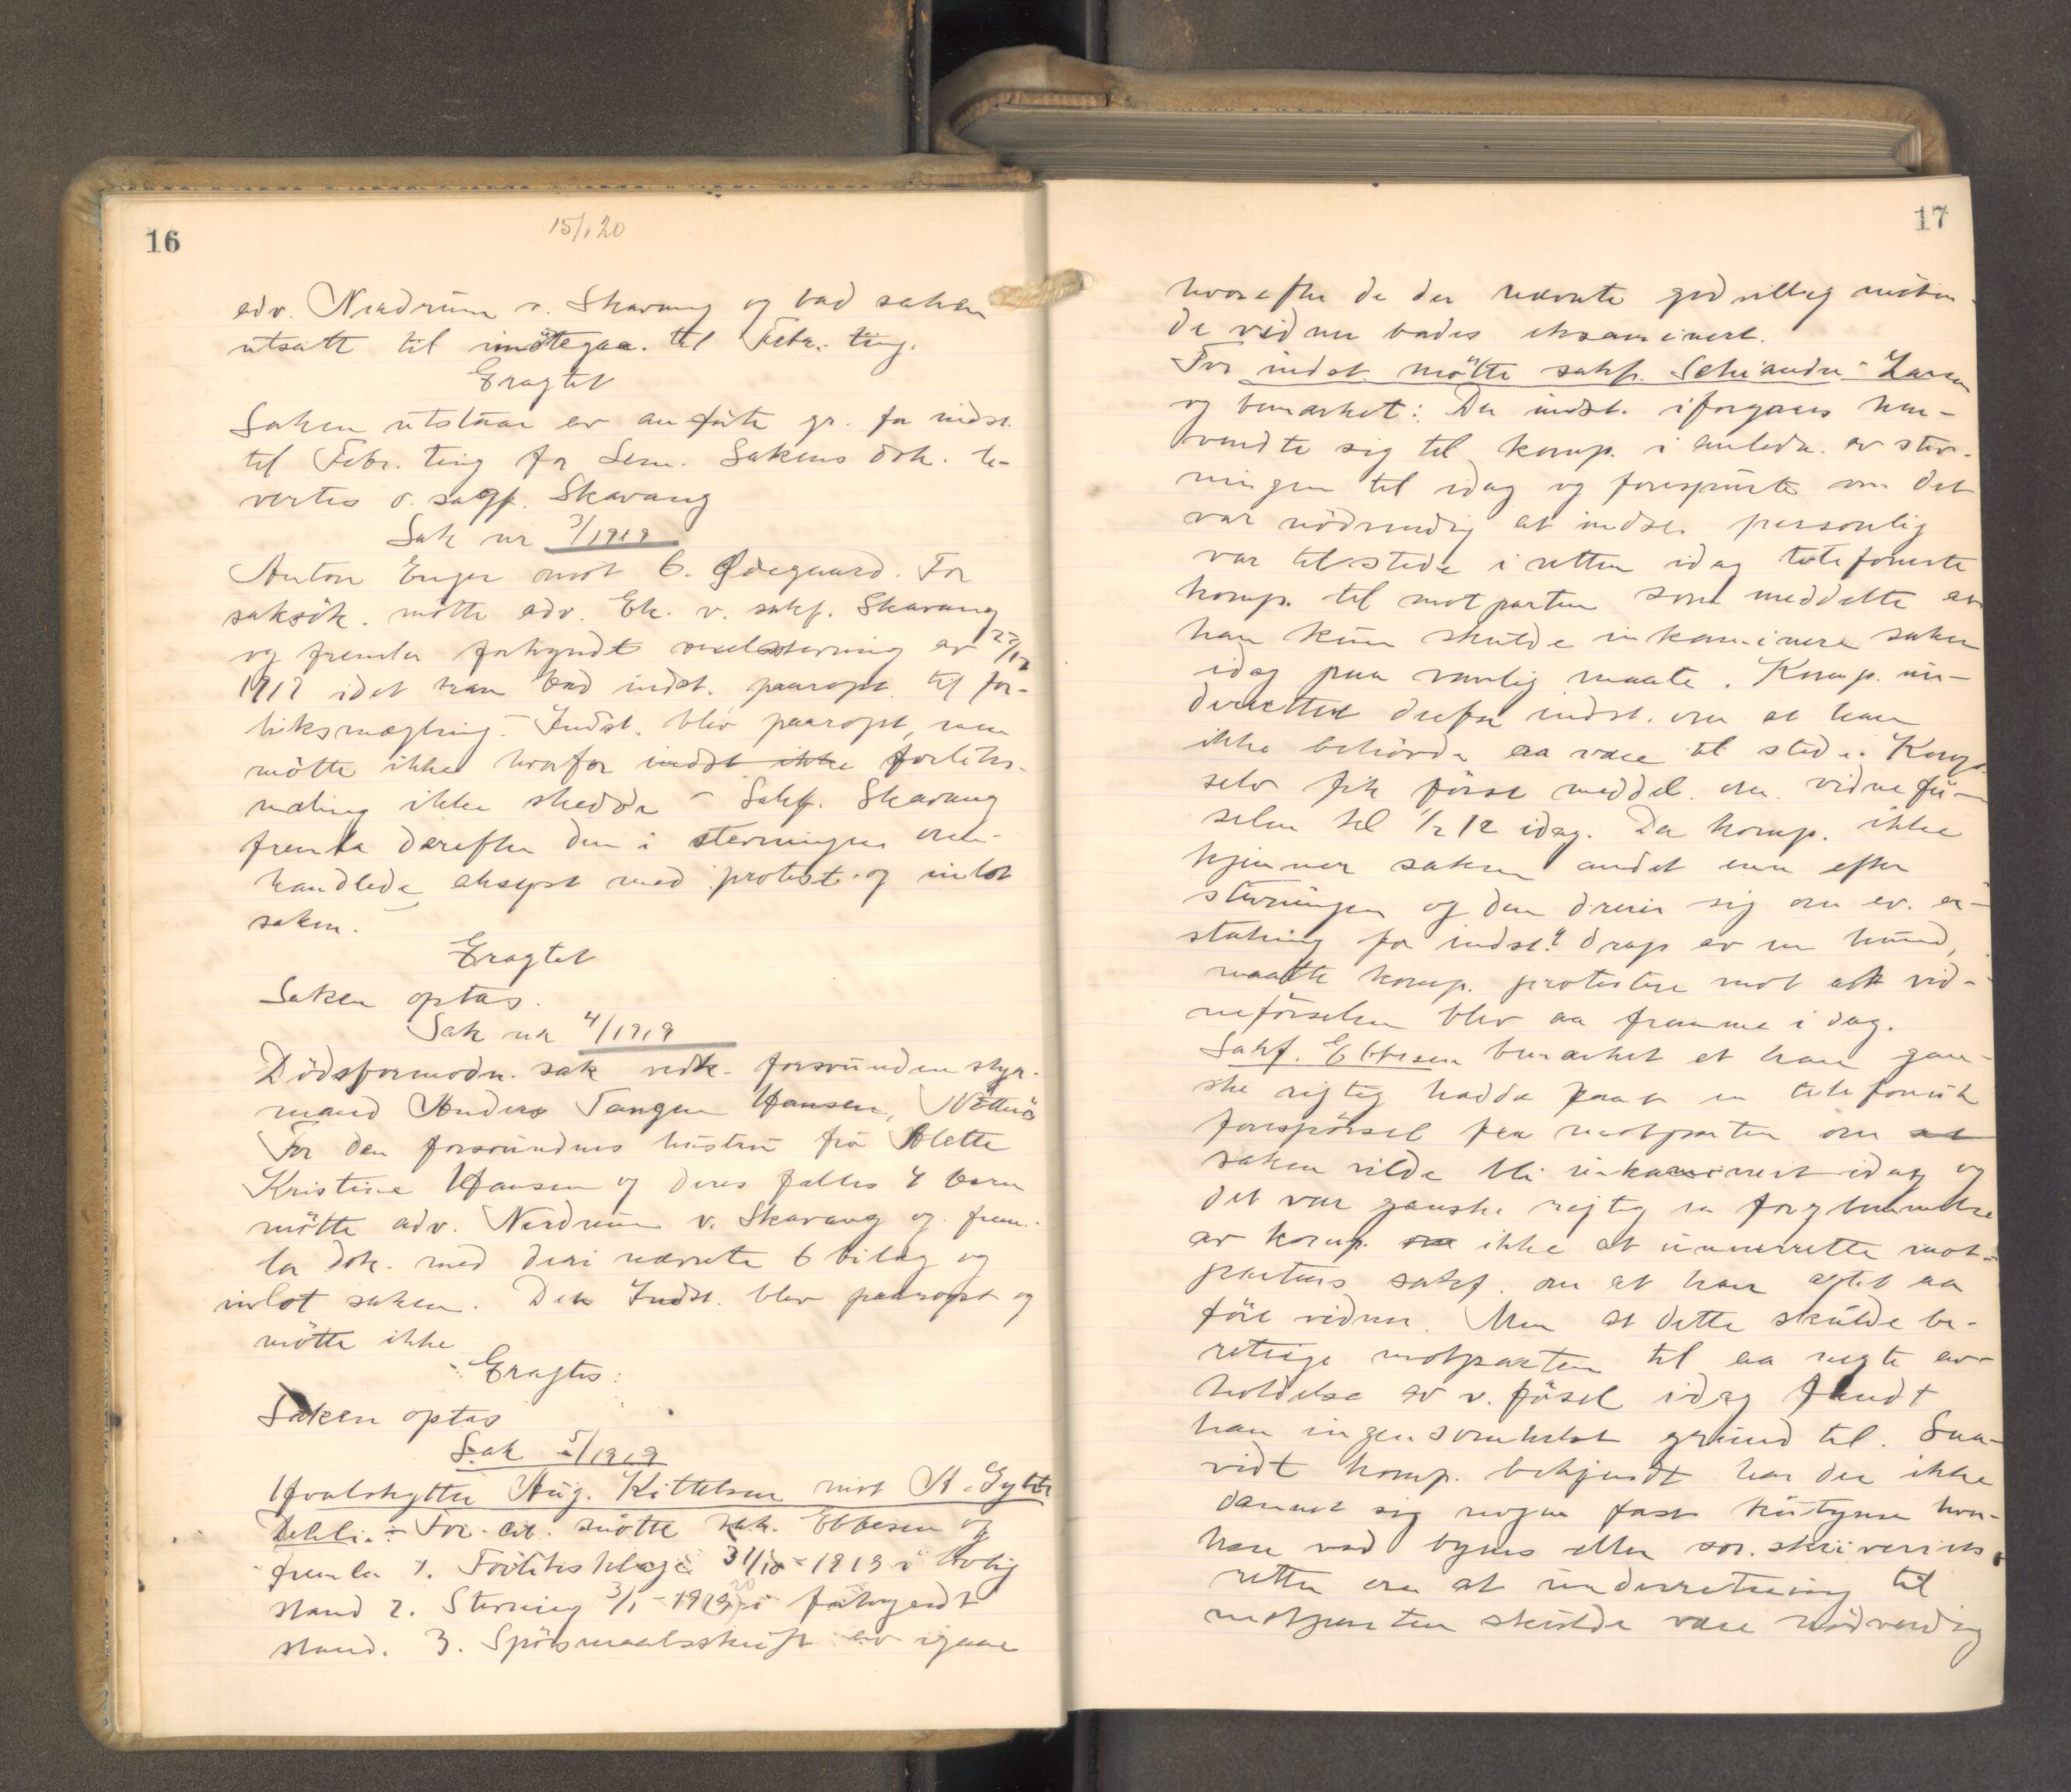 16
15/1 20
adv. Nerdrum v. Skavang og bad saken
utsatt til imøtegaa. til Febr. ting.
Eragtet
Saken utstaar av anførte gr. for indst.
til Febr. ting for Sem. Sakens dok. le-
vertes o. sagf. Skavang
Sak nr 3/1919
Anton Enger mot C. Ødegaard. For
saksök. mötte adv. Ek. v. sakf. Skavang
og fremla forkyndt stevning av 27/12
1919 idet han bad indst. paaropt til for-
liksmægling - Indst. blev paaropt, men
mötte ikke hvorfor indst ikke forliks-
mæling ikke skedde - Sakf. Skavang
fremla derefter den i stevningen om-
handlede aksept med protest og inlot
saken.
Eragtet
Saken optas.
Sak nr 4/1919
Dödsformodn. sak vedk. forsvunden styr-
mand Anders Tangen Hansen, Nötterö
For den forsvundnes hustru fru Alette
Kristine Hansen og deres fælles 4 barn
mötte adv. Nerdrum v. Skavang og frem-
la dok. med deri nævnte 6 bilag og
inlot saken. Den Indst. blev paaropt og
mötte ikke
Eragtes:
Saken optas
Sak 5/1919
Hvalskytter Aug. Kittelsen mot A. Gytte
Dehli. - For cit. mötte sak. Ebbesen og
fremla 1. Forliksklage 31/10 - 1919 i lovlig
stand 2. Stevning 3/1 - 1919 20 i forkyndt
stand. 3. Spörsmaalsskrift av igaar
17
hvorefter de der nævnte godvillig möten-
de vidner bades eksaminert.
For indst. mötte sakf. Schiander-Larsen
og bemærket: Da indst. iforgaars hen-
vendte sig til komp. i anledn. av stev-
ningen til idag og forespurte om det
var nödvendig at indst. personlig
var tilstede i retten idag telefonerte
komp. til motparten som meddelte at
han kun skulde inkaminere saken
idag paa vanlig maate. Komp. un-
derrettet derfor indst. om at han
ikke behövde aa være til stede. Komp.
selv fik först meddel. om vidneför-
selen kl 1/2 12 idag. Da komp. ikke
kjenner saken andet enn efter
stevningen og den dreier sig om ev. er-
statning for indst.s drap av en hund,
maatte komp. protestere mot at vid-
neförselen blev aa fremme i dag.
Sakf. Ebbesen bemærket at han gan-
ske rigtig hadde faat en telefonisk
forespörsel fra motparten om at
saken vilde bli inkaminert idag og
det var ganske rigtig en forglemmelse
av komp. om ikke at underrette mot-
partens sakf. om at han agtet aa
före vidner. Men at dette skulde be-
rettige motparten til aa negte av-
holdelse av v. försel idag fandt
han ingensomhelst grund til. Saa-
vidt komp. bekjendt har der ikke
dannet sig nogen fast kutyme hver-
ken ved byens eller sor.skriverens
retter om at underretning til
motparten skulde være nödvendig